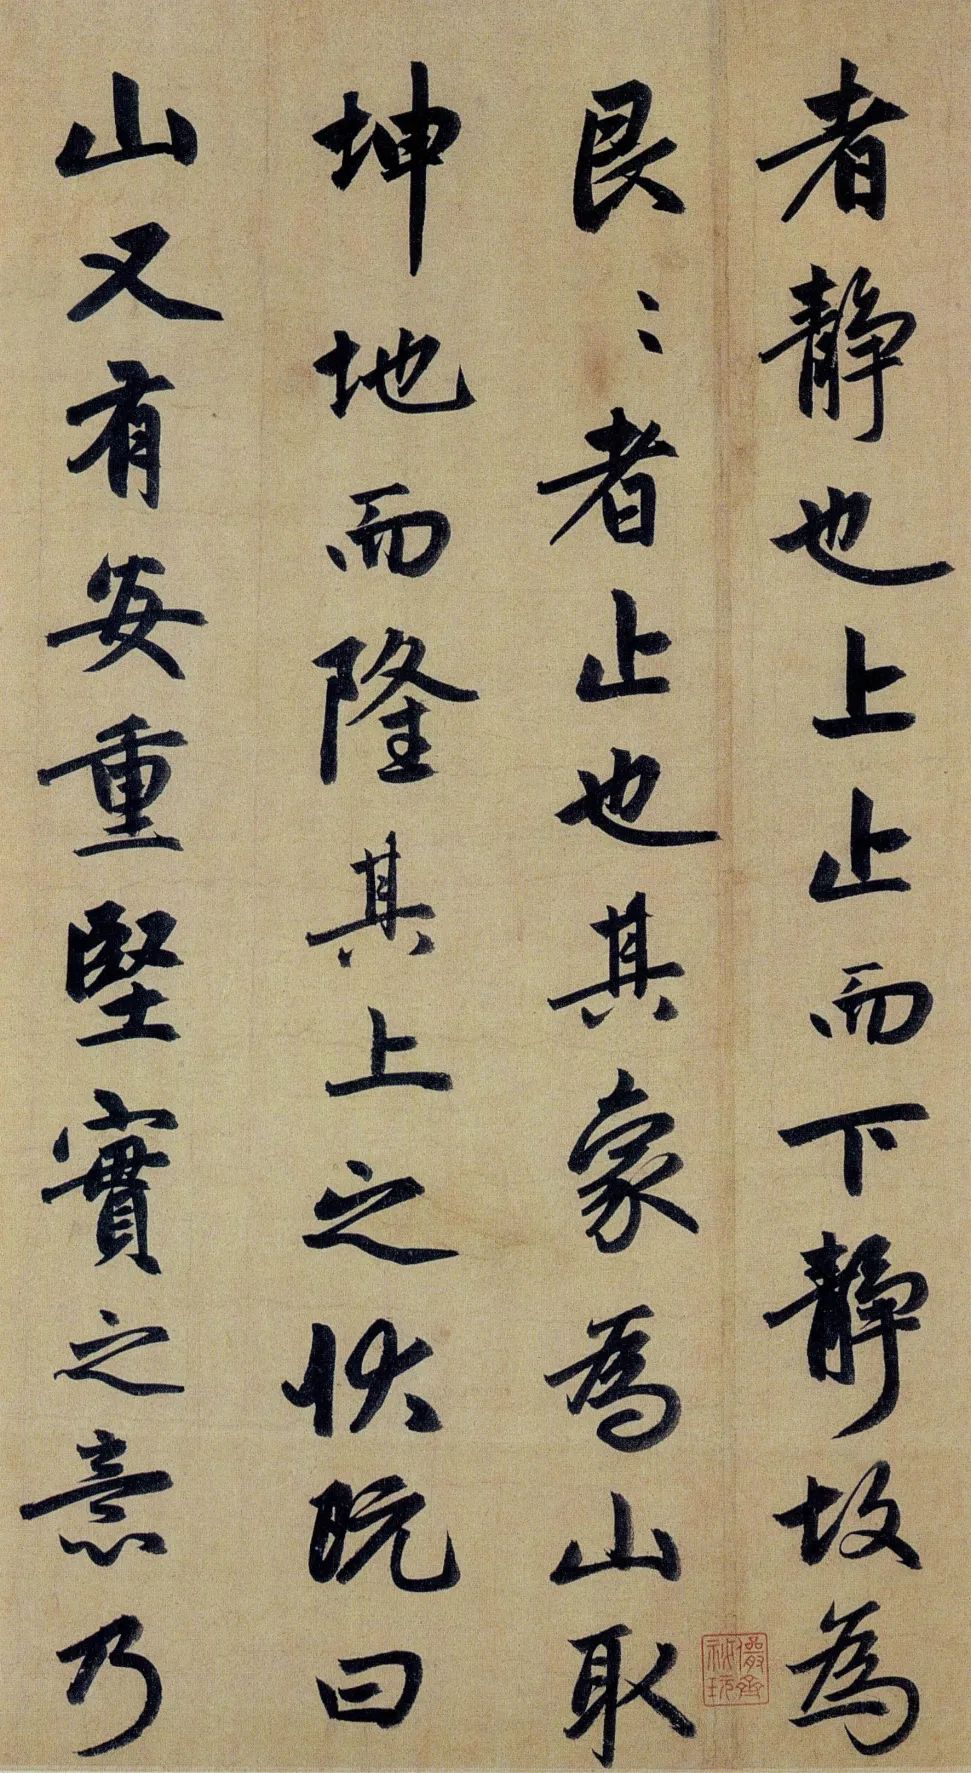 者静也上止而下静故為
艮〻者止也其象為山取
坤地而隆其上之状既曰
山又有安重堅實之意乃
儼齋
祕玩